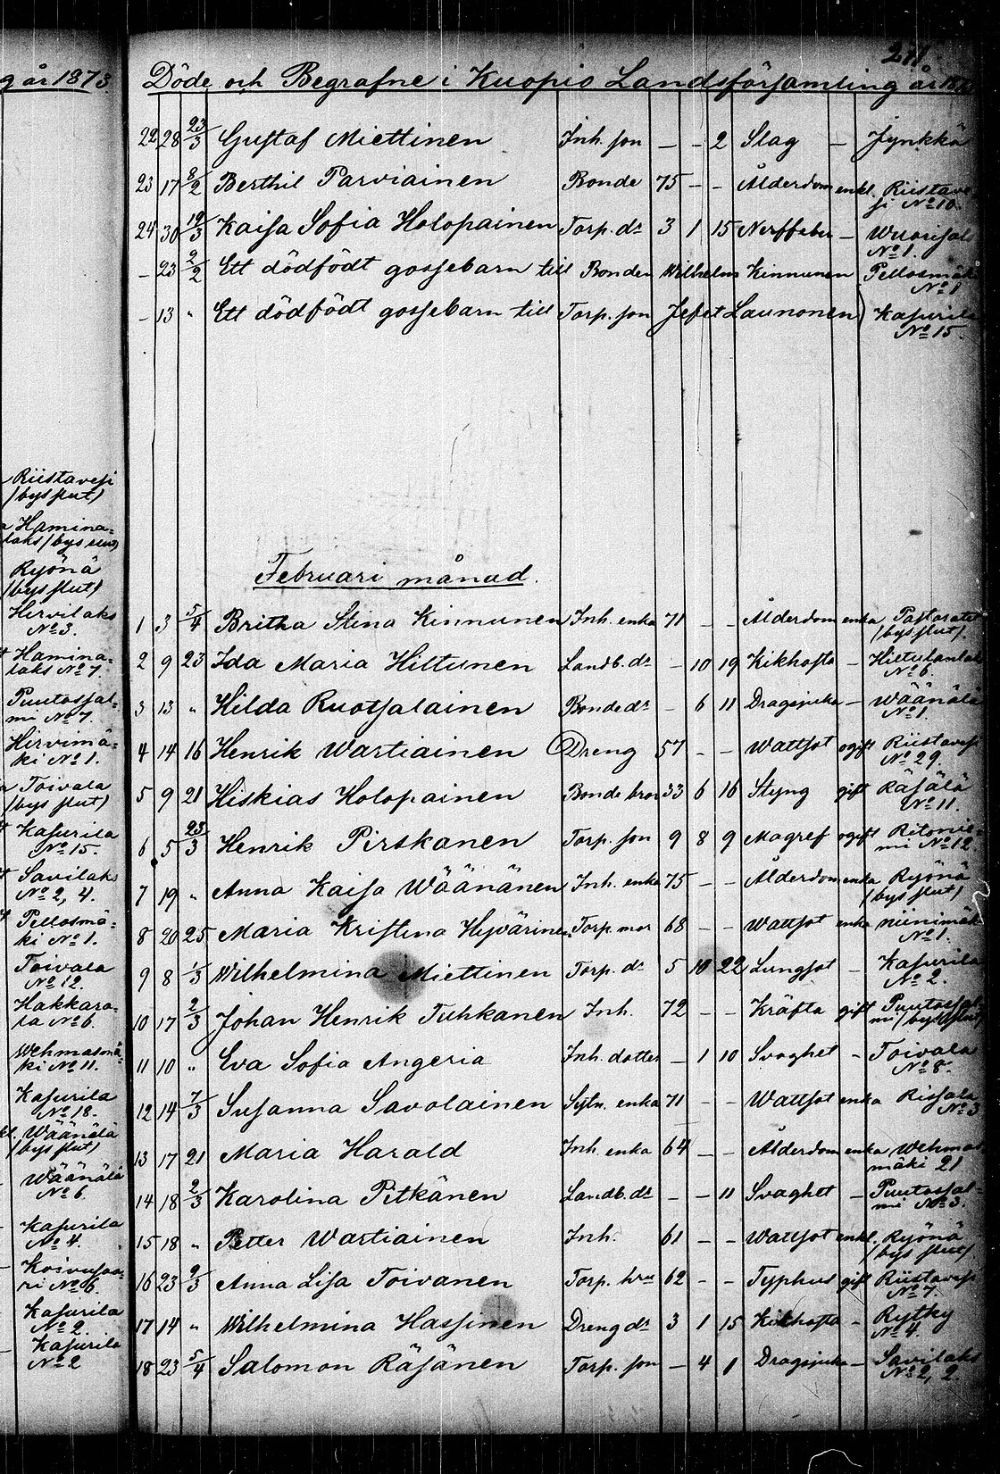 g år 1873
Riistavesi
/bys slut/
Hamina=
laks /bys slut/
Ryönä
/bys slut/
Hirvilaks
No 3.
Hamina=
laks No 7.
Puutossal=
mi No 7.
Hirvimä=
ki No 1.
Toivala
/bys slut/
Kasurila
No 15.
Savilaks
No 2, 4.
Pellosmä=
ki No 1.
Toivala
No 12.
Hakkara=
la No 6.
Wehmasmä=
ki No 11.
Kasurila
No 18.
Wäänälä
/bys slut/
Wäänälä
No 6.
Kasurila
No 4.
Koivusaa=
ri No 6.
Kasurila
No 2.
Kasurila
No 2
271.
Döde och Begrafne i Kuopio Landsförsamling år
22 28 23/3 Gustaf Miettinen Inh. son – – 2 Slag – Jynkkä
23 17 8/2 Berthil Parviainen Bonde 75 – – Ålderdom enkl. Riistave
si No 10.
24 30 19/3 Kaisa Sofia Holopainen Torp. dr 3 1 15 Nerffeber – Wuorisalo
No 1.
– 23 2/2 Ett dödfödt gossebarn till Bonden Wilhelm Kinnunen Pellosmäki
No 1
– 13 " Ett dödfödt gossebarn till Torp. son Jefet Launonen) Kasurila
No 15.
Februari månad.
1 3 5/4 Britha Stina Kinnunen Inh. enka 71 – – Ålderdom enka Pastoratet
/bys slut/.
2 9 23 Ida Maria Hiltunen Landb. dr – 10 19 Kikhosta – Hiltulanlaks
No 6.
3 13 " Hilda Ruotsalainen Bonde dr – 6 11 Dragsjuka – Wäänälä
No 1.
4 14 16 Henrik Wartiainen Dreng 57 – – Wattsot ogift Riistavesi
No 29.
5 9 21 Hiskias Holopainen Bonde bror 33 6 16 Styng gift Räsälä
No 11.
6 5 23/3 Henrik Pirskanen Torp. son 9 8 9 Magref ogift Ritonie=
mi No 12
7 19 " Anna Kaisa Wäänänen Inh. enka 75 – – Ålderdom enka Ryönä
/bys slut/
8 20 25 Maria Kristina Hyvärinen Torp. mor 68 – – Wattsot enka Niinimäki
No 1.
9 8 1/3 Wilhelmina Miettinen Torp. dr 5 10 22 Lungsot – Kasurila
No 2.
10 17 2/3 Johan Henrik Tuhkanen Inh. 72 – – Kräfta gift Puutossal=
mi /bys slut/
11 10 " Eva Sofia Angeria Inh. dotter – 1 10 Svaghet – Toivala
No 8.
12 14 7/3 Susanna Savolainen Sytn. enka 71 – – Wattsot enka Risala
No 3
13 17 21 Maria Harald Inh. enka 64 – – Ålderdom enka Wehmas
mäki 21
14 18 2/3 Karolina Pitkänen Landb. dr – – 11 Svaghet – Puutossal=
mi No 3.
15 18 " Petter Wartiainen Inh. 61 – – Wattsot enkl. Ryönä
/bys slut/
16 23 9/3 Anna Lisa Toivanen Torp. hru 62 – – Typhus gift Riistavesi
No 7.
17 14 " Wilhelmina Hassinen Dreng dr 3 1 15 Kikhosta – Rytky
No 4.
18 23 5/4 Salomon Räsänen Torp. son – 4 1 Dragsjuka – Savilaks
No 2, 2.